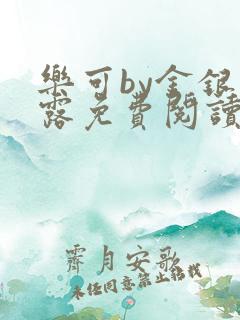 樂可by金銀
露免費閱讀
霽月安歌
未經同意禁止轉載